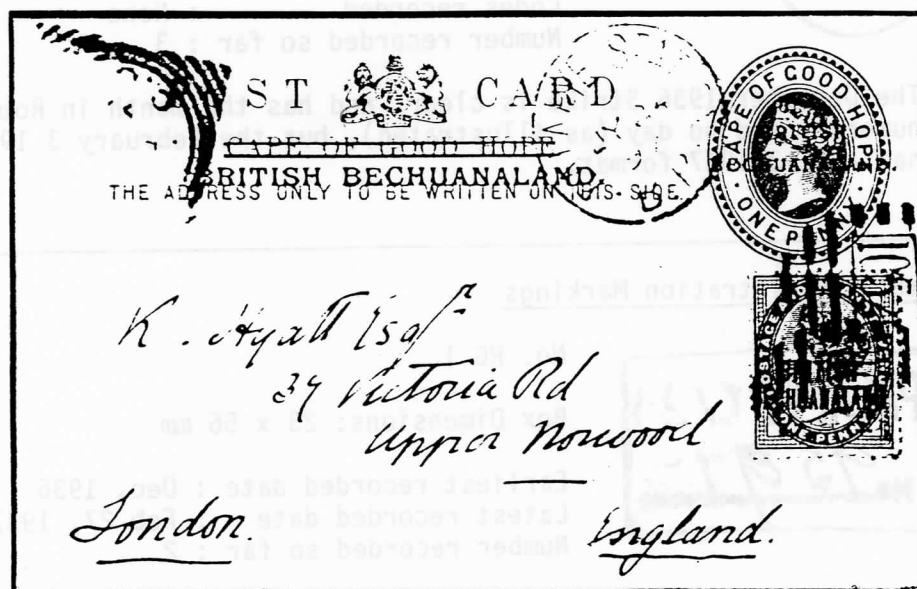 ST CARD
CAPE OF GOOD HOPE
BRITISH BECHUANALAND.
THE ADDRESS ONLY TO BE WRITTEN ON THIS SIDE.
CAPE OF GOOD HOPE
BRITISH
BECHUANALAND.
ONE PENNY
POSTAGE
K. Hyatt Esqr
37 Victoria Rd
Upper Norwood
London.
England.